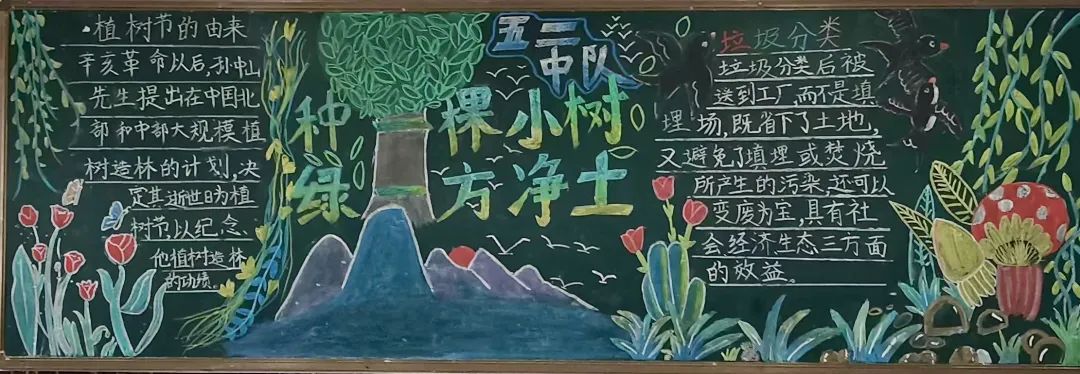 植树节的由来
辛亥革命以后,孙中山
先生提出在中国北
部和中部大规模植
树造林的计划,决
定其逝世日为植
树节以纪念、
他植树造林
的功绩。
五二
中队
种 棵小树
绿 方净土
垃圾分类
垃圾分类后被
送到工厂而不是填
埋场,既省下了土地,
又避免了填埋或焚烧
所产生的污染,还可以
变废为宝,具有社
会经济生态三方面
的效益。